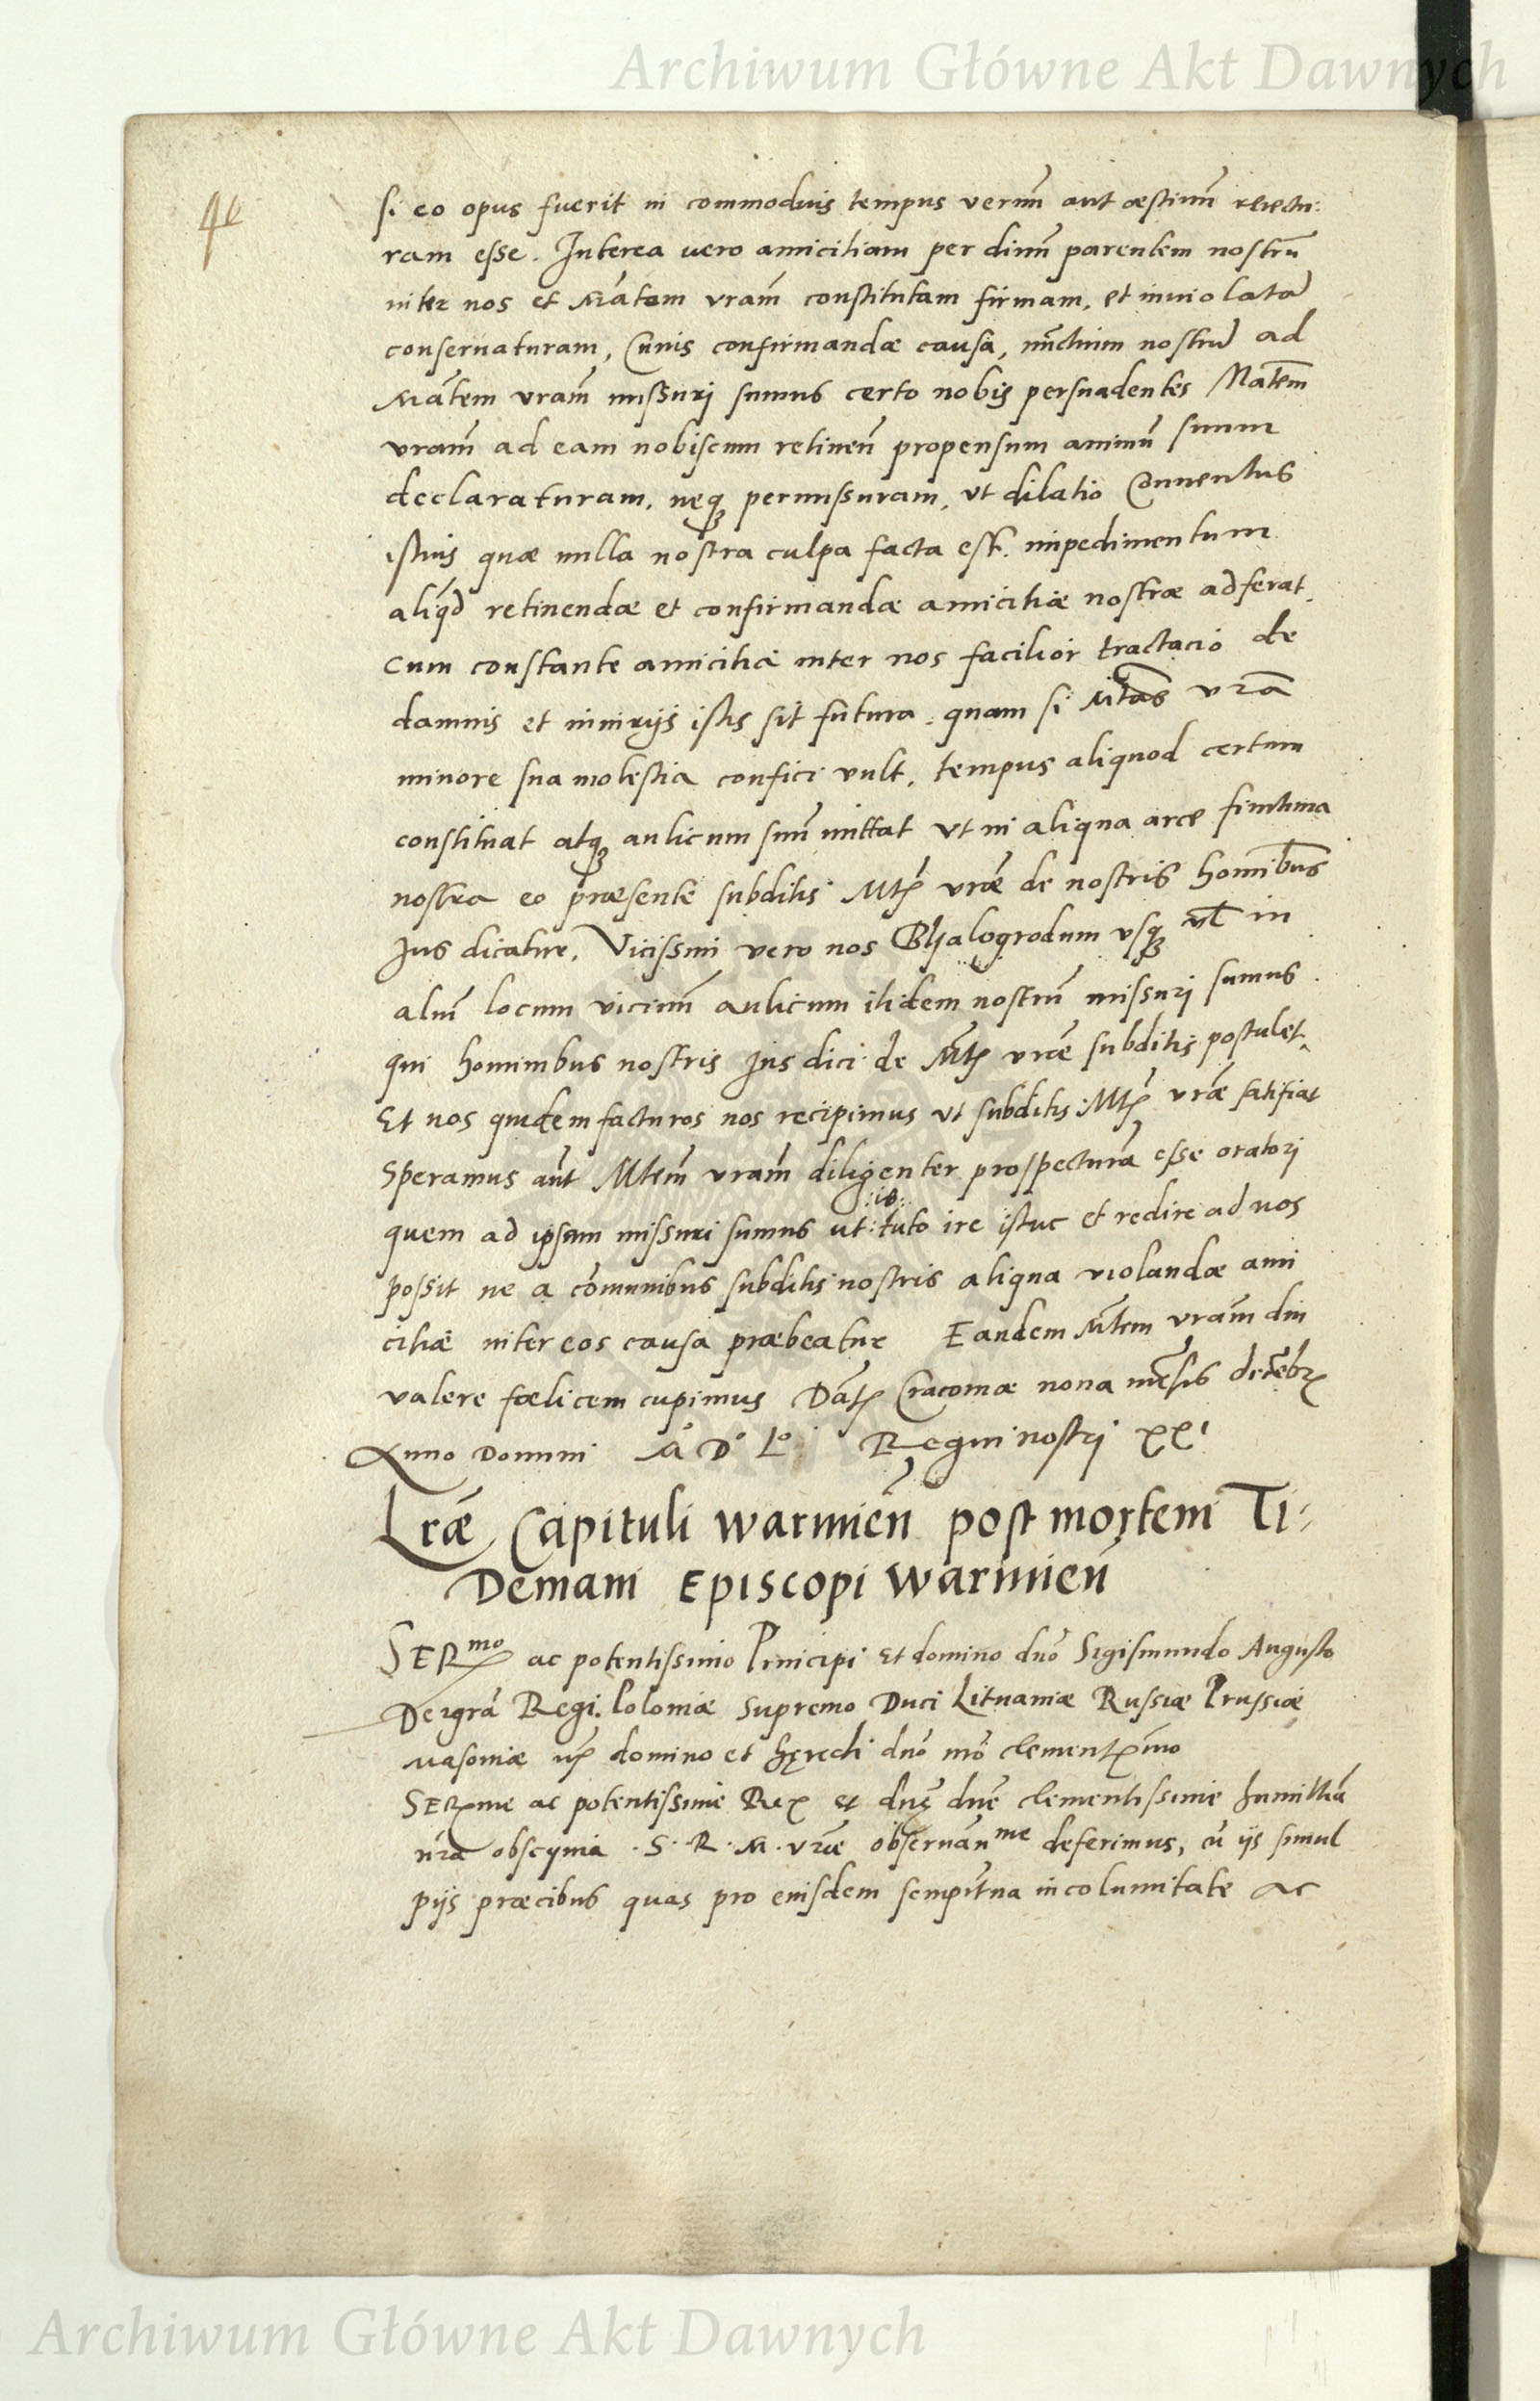 Archiwum Główne Akt Dawnych
si eo opus fuerit in commodius tempus vernũ aut æstiuũ reiectu:
ram esse. Interea uero amicitiam per diuũ parentem nostrũ
inter nos et Mãtem vrãm constitutam firmam, et inuiolatã
conseruaturam, Cuius confirmandæ causa, nũctium nostrũ ad
Mãtem vrãm missuri sumus certo nobis persuadentes Mãtem
vrãm ad eam nobiscum retineñ propensum animũ suum
declaraturam, neq3 permissuram, ut dilatio Conuentus
istius quæ nulla nostra culpa facta est. impedimentum
aliqd retinendæ et confirmandæ amicitiæ nostræ adferat.
Cum constante amicitia inter nos facilior tractacio de
damnis et iniurijs istis sit futura. quam si Mtas vrã
minore sua molestia confici vult, tempus aliquod certum
constituat atq3 aulicum suũ mittat ut in aliqua arce finitima
nostra eo præsente subditis Mtis vræ de nostris hominibus
Jus dicatur. Vicissim vero nos Bhialogrodum usq3 vl in
aliũ locum vicinũ aulicum itidem nostrũ missuri sumus
qui hominibus nostris Jus dici de Mtis vræ subditis postulet.
Et nos quidem facturos nos recipimus ut subditis Mtis vræ satifiat
Speramus aũt Mtem vrãm diligenter prospecturã esse oratori
:is:
quem ad ipsam missuri sumus ut tuto ire istuc et redire ad nos
possit ne a cõmunibus subditis nostris aliqua violandæ ami
citiæ inter eos causa præbeatur Eandem Mtem vrãm diu
valere fœlicem cupimus Dat Cracouiæ nona mẽsis decẽbr
Anno Domini M° D° L° Regni nostri XXI
Lræ Capituli warmieñ post mortem Ti-
Demani Episcopi warmieñ
SER^mo ac potentissimo Principi et domino dño Sigismundo Augusto
Dei grã Regi Poloniæ Supremo Duci Lituaniæ Russiæ Prussiæ
Masouiæ domino et hęredi dño nrõ clementmo
SERme ac potentissime Rex et dñe dñe clementissime humillia
nrã obsequia .S. R. M. vræ obseruan^me deferimus, cũ ijs simul
pijs præcibus quas pro eiusdem sempitna incolumitate ac
Archiwum Główne Akt Dawnych